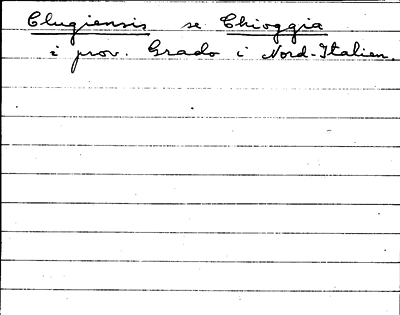 Clugiensis se Chioggia
i prov. Grado i Nord-Italien.